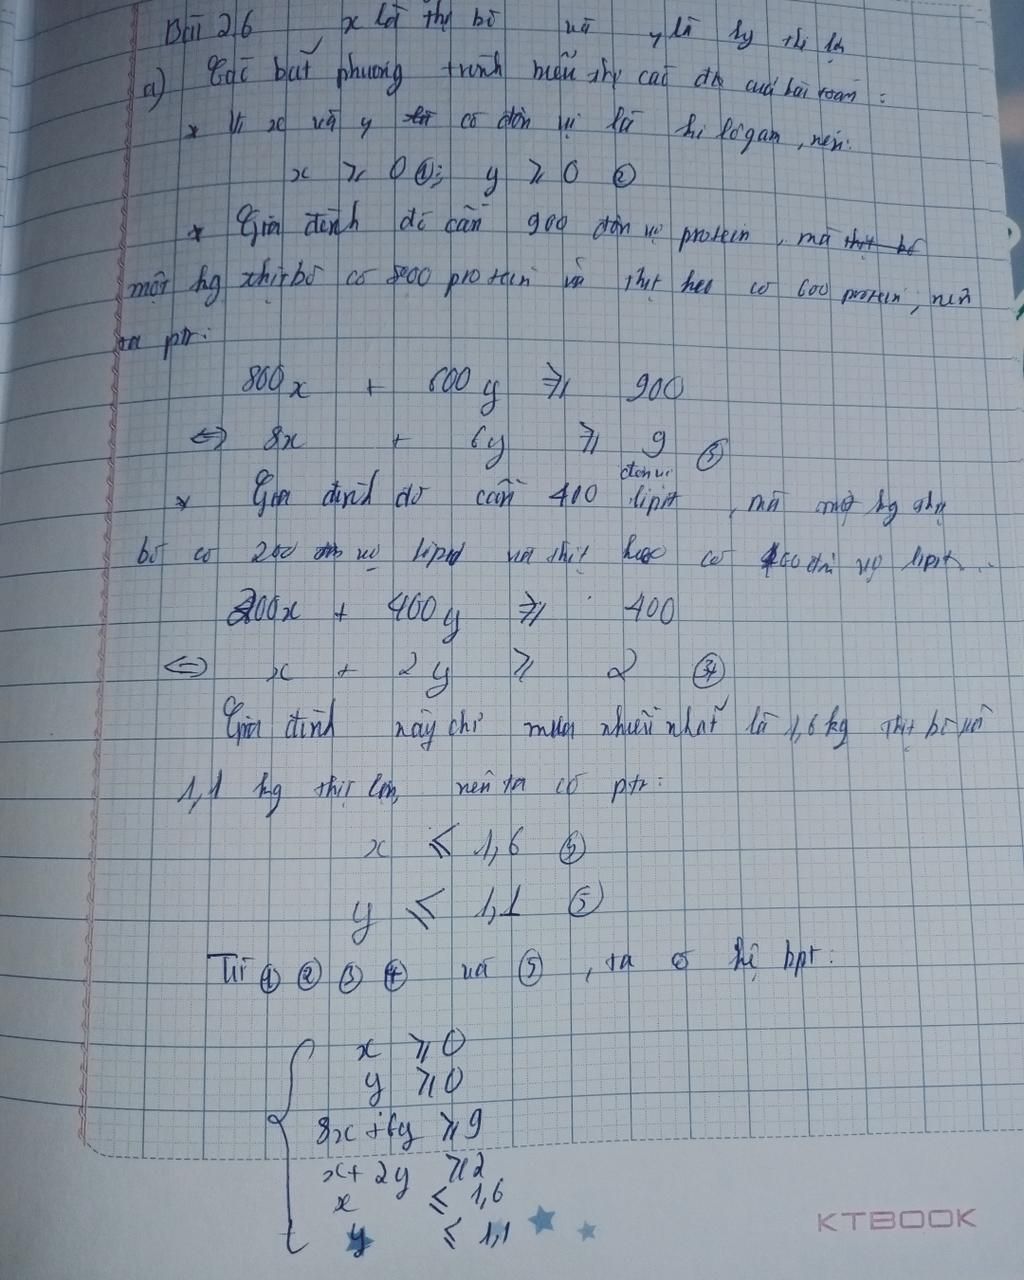 Bài 26 x là thịt bò và y là kg thịt lợn
a) Các bất phương trình biểu thị các đk của bài toán :
* Vì x và y có đơn vị là ki lôgam, nên:
x ⩾ 0 ①; y ⩾ 0 ②
* Gia đình đó cần 900 đơn vị protein, mà thịt bò
một kg thịt bò có 800 protein và thịt heo có 600 protein, nên
ta ptr:
800x + 600y ⩾ 900
⇔ 8x + 6y ⩾ 9 ③
đơn vị
* Gia đình đó cần 400 lipit, mà một kg thịt
bò có 200 đơn vị lipit và thịt heo có 400 đơn vị lipit...
200x + 400y ⩾ 400
⇔ x + 2y ⩾ 2
Gia đình này chỉ mua nhiều nhất là 1,6 kg thịt bò và
1,1 kg thịt lợn, nên ta có ptr:
x ⩽ 1,6
y ⩽ 1,1 ⑤
Từ ① ② ③ ④ và ⑤, ta có hệ bpt:
x ⩾ 0
y ⩾ 0
8x + 6y ⩾ 9
x + 2y ⩾ 2
x ⩽ 1,6
y ⩽ 1,1
KTBOOK